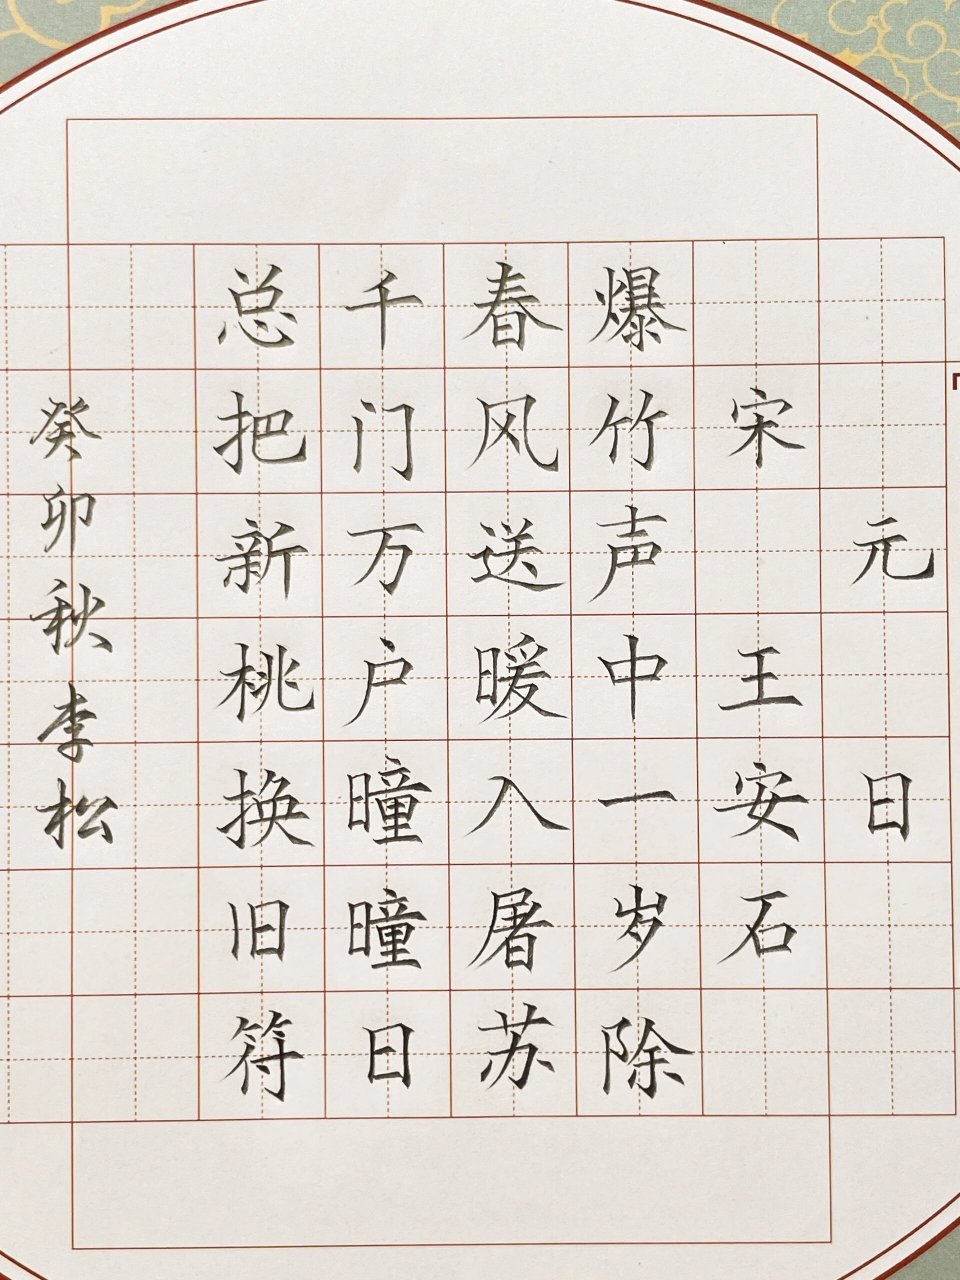 元日
宋王安石
爆竹声中一岁除
春风送暖入屠苏
千门万户曈曈日
总把新桃换旧符
癸卯秋李松